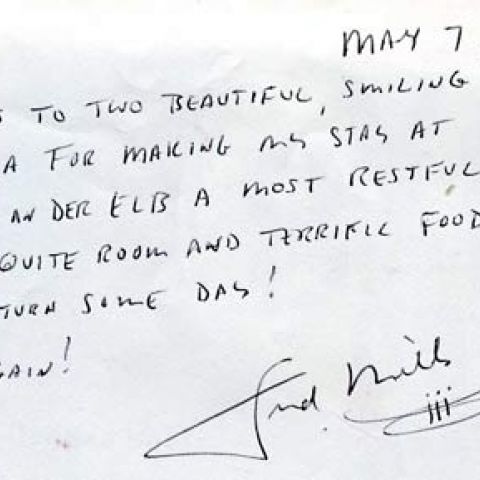 MAY 7
S TO TWO BEAUTIFUL, SMILING
A FOR MAKING MY STAY AT
AN DER ELB A MOST RESTFUL
QUITE ROOM AND TERRIFIC FOOD
TURN SOME DAY!
GAIN!
Fred. Mills
iii